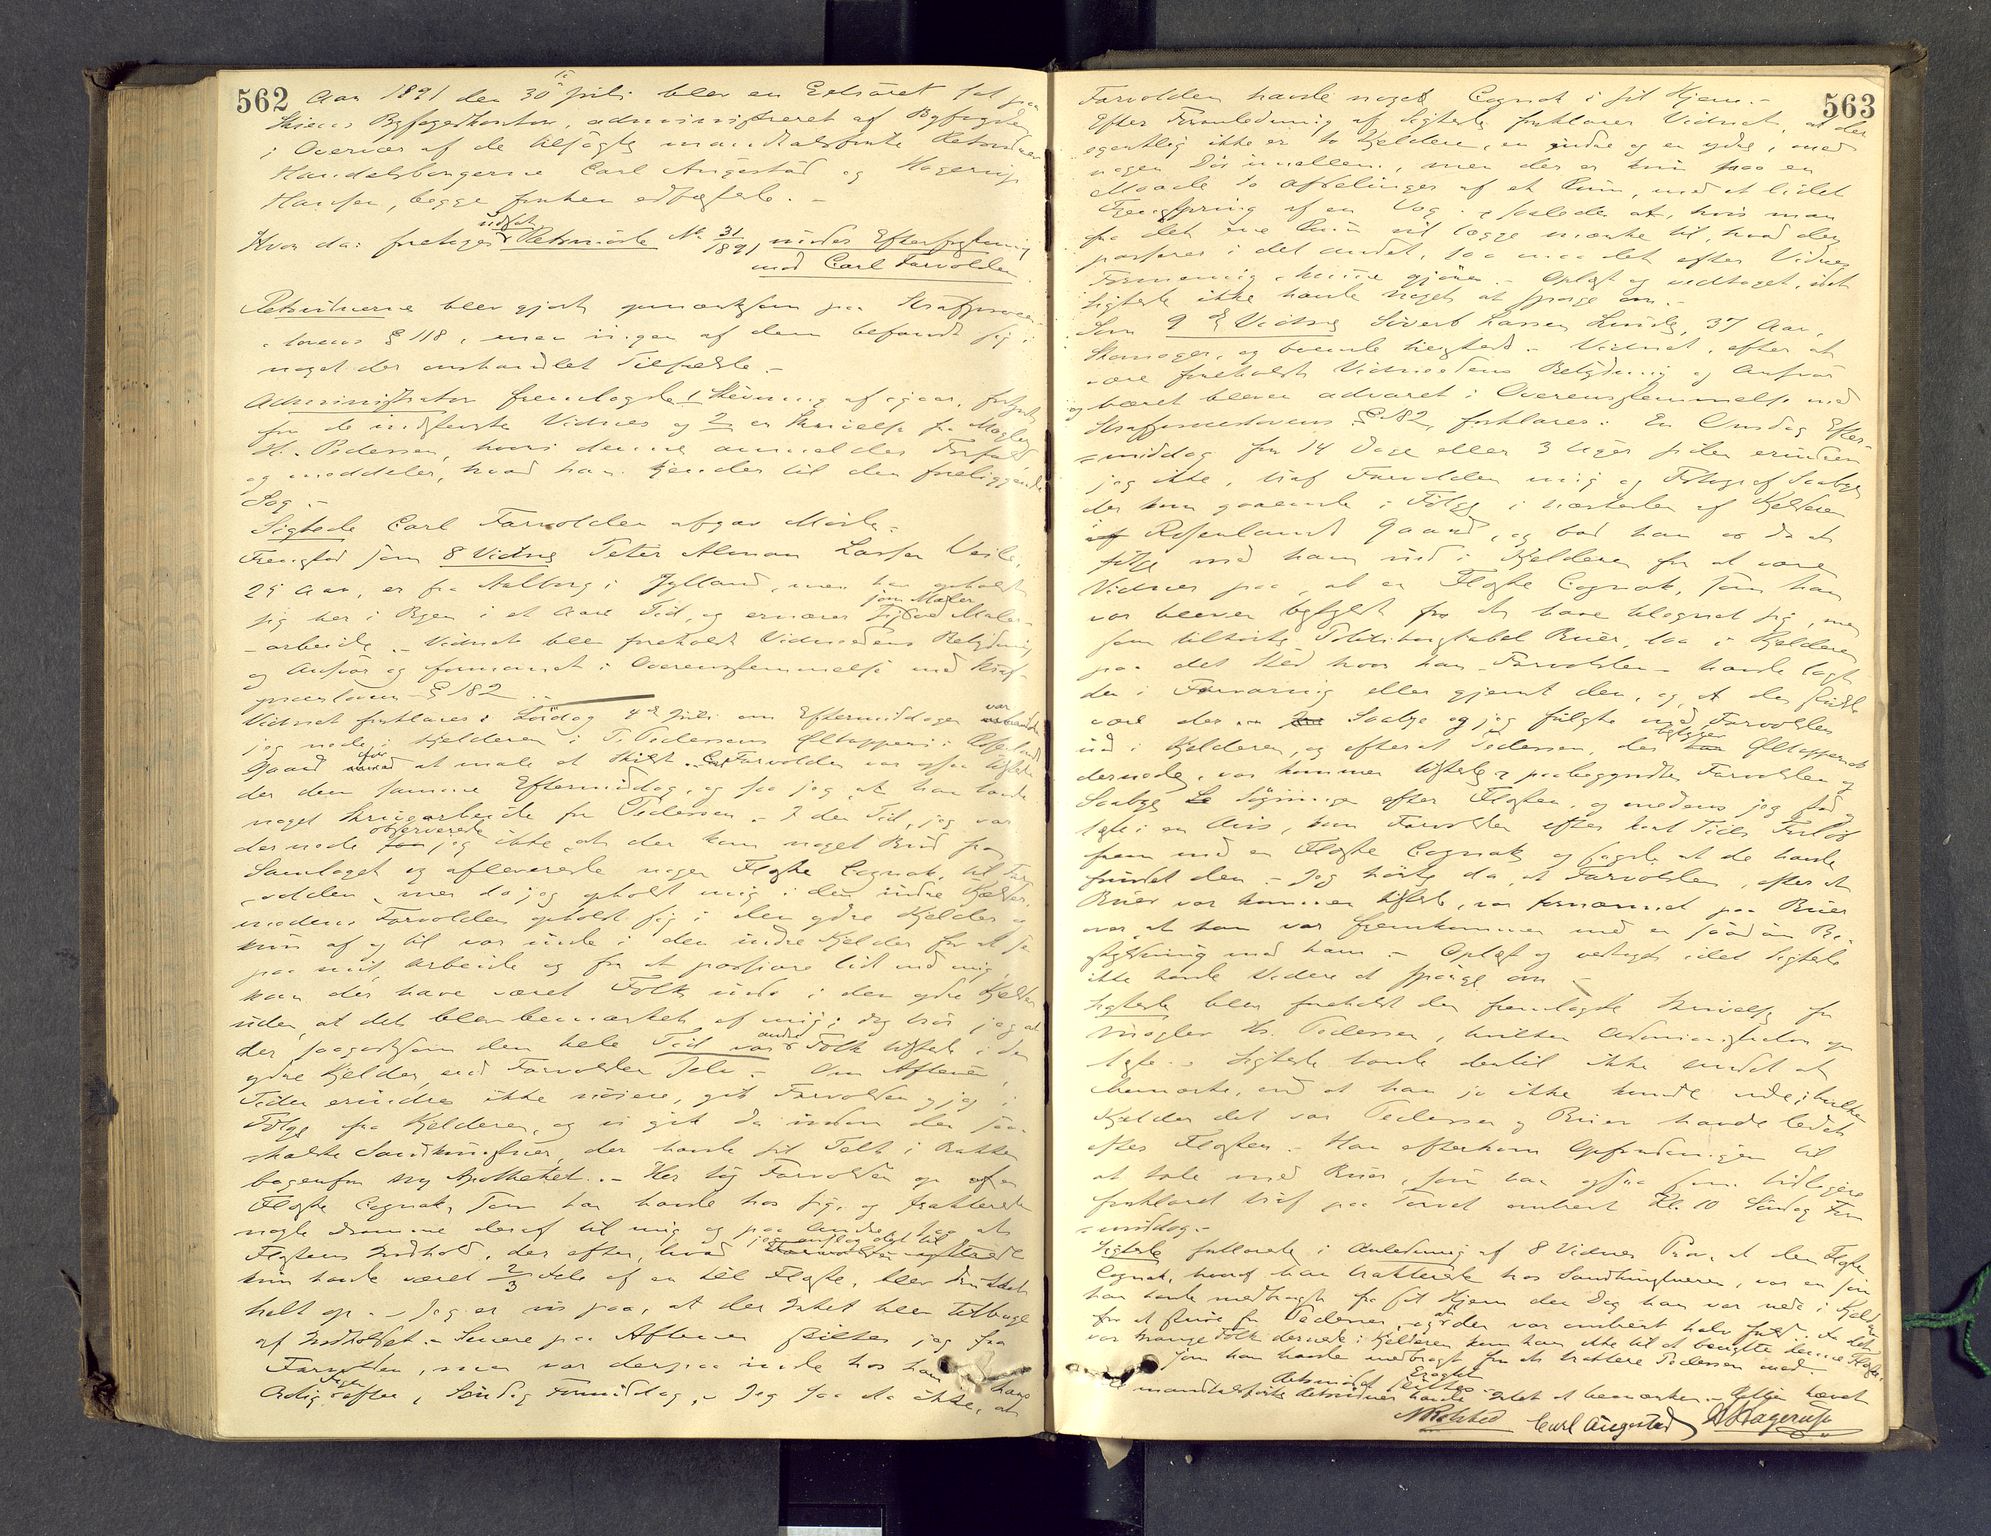 562
Aar 1891 den 30te Juli blev en Extraret sat paa
Skiens Byfogedkontor, administreret af Byfogden
i Overvær af de tilsagte mandtalsførte Retsvidner
Handelsborgerne Carl Augestad og Hagerup
Hansen, begge forhen edfæstede. -
Hvor da: foretages udsat Retsmøde No 31/1891 under Efterforskning
mod Carl Farvolden
Retsvidnerne blev gjort opmærksom paa Straffproces-
lovens § 118, men ingen af dem befandt sig i
noget der omhandlet Tilfælde. -
Administrator fremlagde 1 Stevning af igaar, forkyndt
for de indstevnte Vidner og 2 en Skrivelse fra Mægler
H. Pedersen, hvori denne anmelder Forfald
og meddeler, hvad han kjender til den foreliggende
Sag. -
Sigtede Carl Farvolden afgav Møde. -
Fremstod som 8 Vidne Peter Alman Larsen Veile,
25 Aar, er fra Aalborg i Jylland, men har opholdt
sig her i Byen i et Aars Tid, og ernærer sig som Maler ved Maler-
arbeide. - Vidnet blev foreholdt Vidneedens Betydning
og Ansvar og formanet i Overensstemmelse med Straf-
proceslovens § 182. -
Vidnet forklarer: Lørdag 4de Juli om Eftermiddagen var
jeg nede i Kjelderen i T. Pedersens Øltapperi i Rosenlunds
Gaard for at male et Skilt. Farvolden var ogsaa tilstede
der den samme Eftermiddag, og saa jeg at han havde
noget Skriverarbeide for Pedersen. - I den Tid, jeg var
dernede observerede jeg ikke, at der kom noget Bud fra
Samlaget og afleverede nogen Flaske Cognak til Far-
volden, men da jeg opholdt mig i den indre Kjelder,
medens Farvolden opholdt sig i den ydre Kjelder og
kun af og til var inde i den indre Kjelder for at se
paa mit Arbeide og for at passiare lidt med mig,
kan der have været Folk inde i den ydre Kjelder
uden, at det blev bemærket af mig; dog tror jeg at
der saagodtsom den hele Tid var andre Folk tilstede i den
ydre Kjelder, end Farvolden selv. - Om Aftenen,
Tiden erindres ikke nøiere, gik Farvolden og jeg i
Følge fra Kjelderen, og vi gik da indom den saa-
kaldte Sandkunstner, der havde sit Telt i Bakken
bagenfor ny Apotheket. - Her tog Farvolden op en
Flaske Cognak, som han havde hos sig, og trakterede
nogle Dramme deraf til mig og paa andre, saa at
Flaskens Indhold, der efter, hvad jeg antog det til
kun havde været 2/3 Dele af en hel Flaske, blev drukket
helt op. - Jeg er vis paa, at der Intet blev tilbage
af Indholdet. - Senere paa Aftenen skiltes jeg fra
Farvolden, men var derpaa inde hos ham i hans
Bolig Dagen efter, Søndag Formiddag. - Jeg saa da ikke, at
563
Farvolden havde noget Cognak i sit Hjem. -
Efter Foranledning af Sigtede forklarer Vidnet, at der
egentlig ikke er to Kjeldere, en indre og en ydre, med
nogen Dør imellem, men der er kun paa en
Maade to Afdelinger af et Rum, med et lidet
Fremspring af en Væg, saaledes at, hvis man
fra det ene Rum vil lægge mærke til, hvad der
passerer i det andet, saa maa det efter Vidnets
Formening kunne gjøres. - Oplæst og vedtaget, idet
Sigtede ikke havde noget at spørge om. -
Som 9de Vidne Sivert Larsen Lunde, 37 Aar,
Skomager, og boende heysteds. - Vidnet, efter at
være foreholdt Vidneedens Betydning og Ansvar
og bæret bleven advaret i Overensstemmelse med
Straffproceslovens § 182, forklarer: En Onsdag Efter-
middag for 14 Dage eller 3 Uger siden erindrer
jeg ikke, traf Farvolden mig og Fotograf Saabye
der kom gaaende i Følge i nærheden af Kjelderen
i Rosenlunds Gaard, og bad han os da at
følge med ham ind i Kjelderen for at være
Vidner paa, at en Flaske Cognak, som han
var bleven beskyldt for at have tilegnet sig, men
som tilhørte Politikonstabel Buer, laa i Kjelderen
paa det Sted hvor han - Farvolden - havde lagt
den i Forvaring eller gjemt den, og, at den skulde
være der. - Saabye og jeg fulgte med Farvolden
ind i Kjelderen, og efterat Pedersen, der bestyrer Øltapperiet
dernede, var kommen tilstede, paabegyndte Farvolden og
Saabye Søgninge efter Flasken, og medens jeg stod og
læste i en Avis, kom Farvolden efter kort Tids Forløb
frem med en Flaske Cognak og sagde, at de havde
fundet den. - Jeg hørte da, at Farvolden, efter at
Buer var kommen tilstede, var fornærmet paa Buer
over, at han var fremkommen med en saadan Be-
skyldning mod ham. - Oplæst og vedtaget idet Sigtede
ikke havde videre at spørge om. -
Sigtede blev foreholdt den fremlagte Skrivelse fra
Mægler Hr. Pedersen, hvilken Administrator op-
læste. - Sigtede havde dertil ikke andet at
bemærke, end at han jo ikke kunde vide, i hvilken
Kjelder det var Pedersen og Buer havde ledet
efter Flasken. - Han efterkom Opfordringen til
at tale med Buer, som han ogsaa som tidligere
forklaret traf paa Torvet omkring Kl. 10 Søndag For-
middag. -
Sigtede forklarede, i Anledning af 8 Vidnes Prov, at den Flaske
Cognak, hvoraf han trakterede hos Sandkunstneren, var en som
han havde medbragt fra sit Hjem den Dag han var nede i Kjelderen
for at skrive for Pedersen, og at den var omkring halv fuld. Da det
var mange Folk dernede i Kjelderen kom han ikke til at benytte denne Flaske,
som han havde medbragt for at traktere Pedersen med.
Retsmødet sluttes.
De mandtalsførte Retsvidner havde Intet at bemærke. - Retten hævet
Carl Augestad H Hagerup